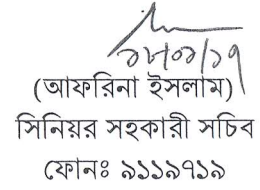 ১৮/০১/১৭
(আফরিনা ইসলাম)
সিনিয়র সহকারী সচিব
ফোনঃ ৯১১৯৭১৯